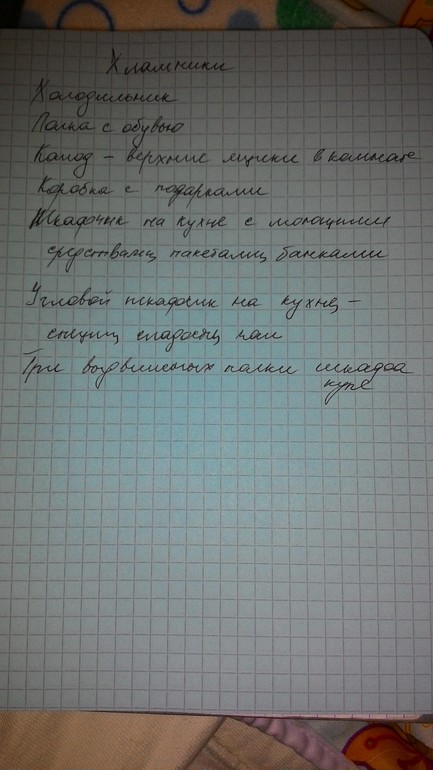 Хламники
Холодильник
Полка с обувью
Комод – верхние ящики в комнате
Коробка с подарками
Шкафчик на кухне с моющими
средствами, пакетами, банками
Угловой шкафчик на кухне, –
специи, сладости, чаи
Три выдвижных полки шкафа
купе